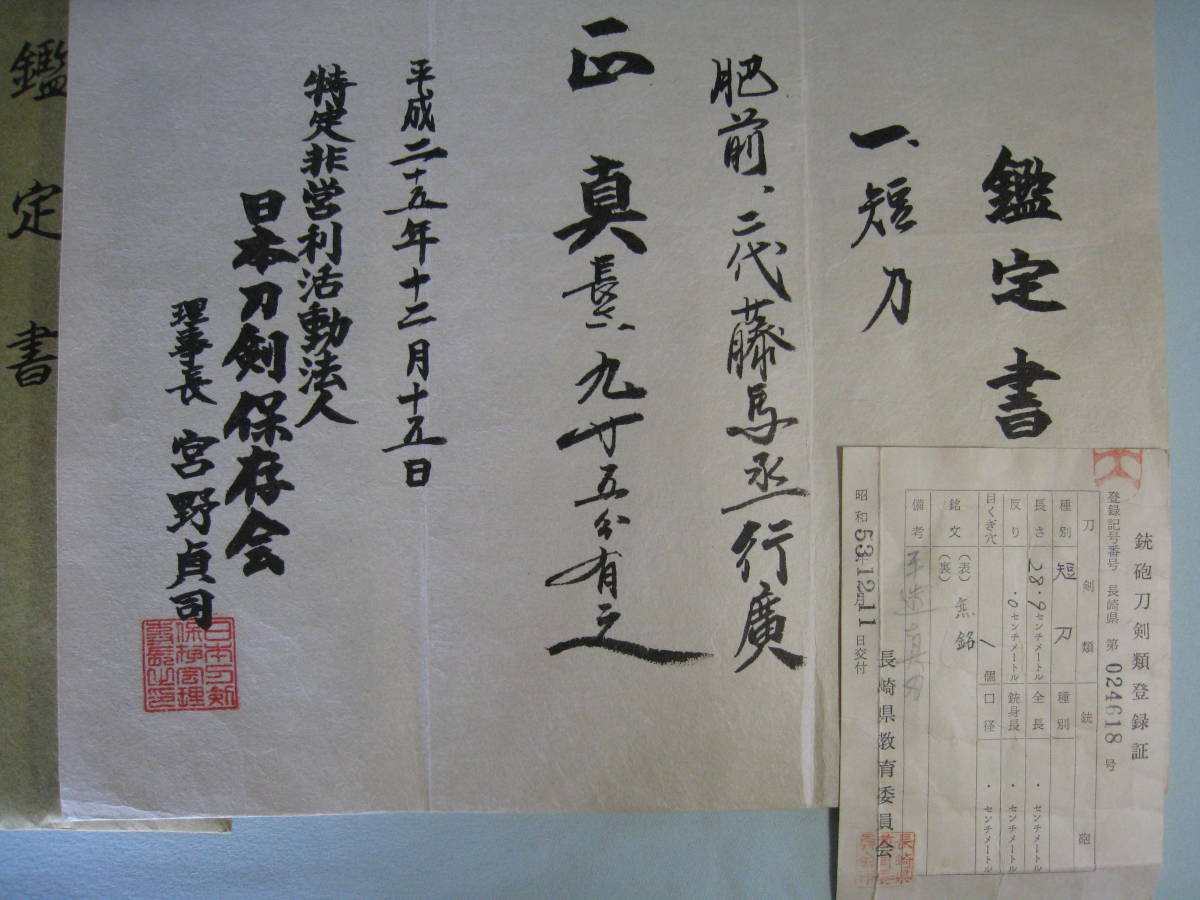 鑑定書
一、短刀
肥前、二代藤馬丞行廣
正真長六九寸五分有之
平成二十五年十二月十五日
特定非営利活動法人
日本刀剣保存会
理事長 宮野貞司
鑑定書
銃砲刀剣類登録証
登録記号番号 長崎県 第 024618 号
刀剣類 銃砲
種別 短刀 種別
長さ 28.9センチメートル 全長 ・センチメートル
反り ・0センチメートル 銃身長 ・センチメートル
目くぎ穴 1個 口径 ・センチメートル
銘文 (表) 無銘
(裏)
備考 平造
昭和53年12月11日交付
長崎県教育委員会